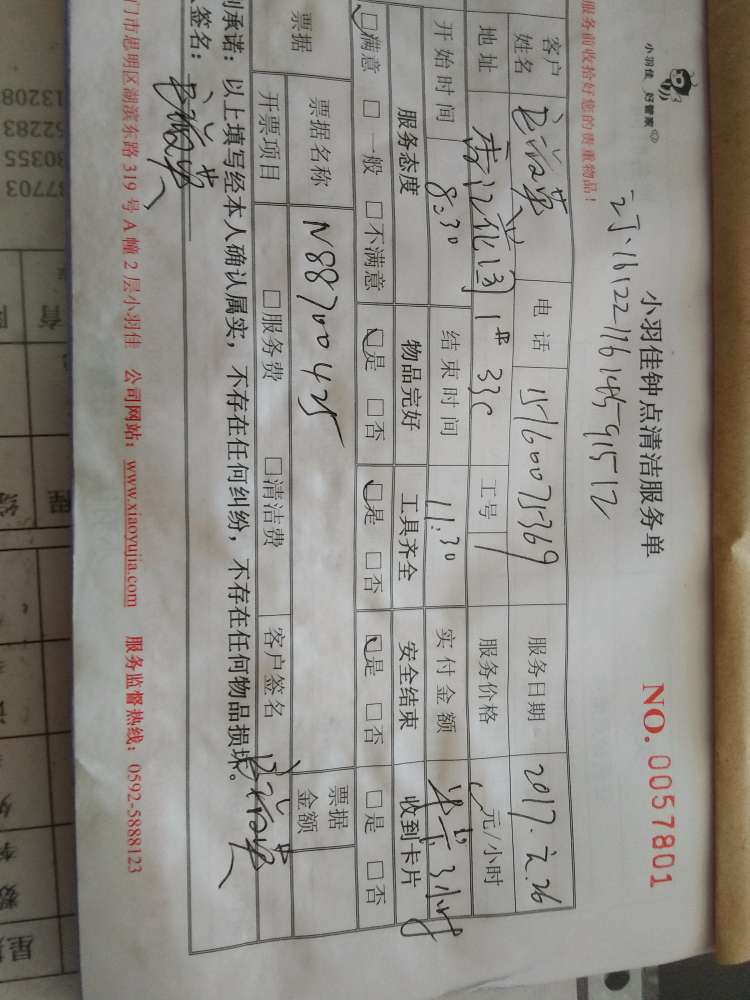 小羽佳 好管家
小羽佳钟点清洁服务单
NO. 0057801
服务前收拾好您的贵重物品！
客户姓名 电话 15160075369 服务日期 2017.元.26
地址 1# 33C 工号 服务价格 元/小时
开始时间 8:30 结束时间 11:30 实付金额 3小时
服务态度 物品完好 工具齐全 安全结束 收到卡片
□满意 □一般 □不满意 □是 □否 □是 □否 □是 □否 □是 □否
票据 票据名称 N88700425 票据金额
开票项目 □服务费 □清洁费 客户签名
承诺：以上填写经本人确认属实，不存在任何纠纷，不存在任何物品损坏。
签名：
门市思明区湖滨东路 319 号 A 幢 2 层小羽佳 公司网站：www.xiaoyujia.com 服务监督热线：0592-5888123